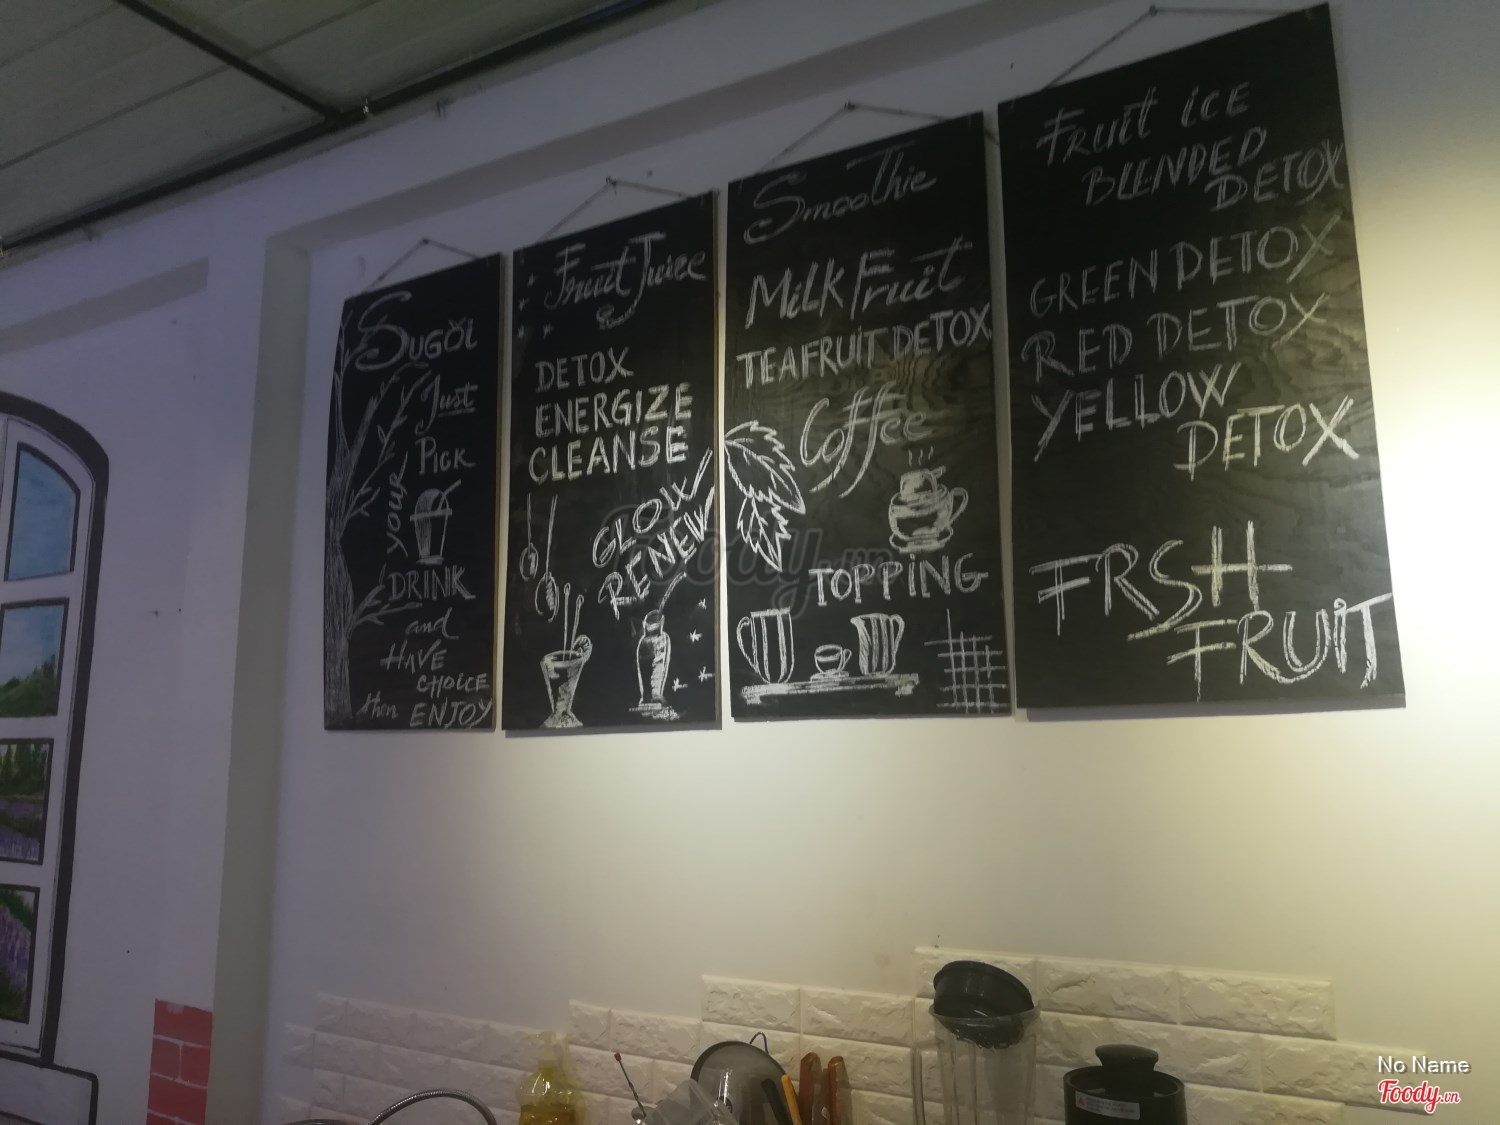 Sugŏi
Just
Pick
your
DRINK
and
HAVE
CHOICE
then ENJOY
Fruit Juice
DETOX
ENERGIZE
CLEANSE
GLOW
RENEW
Smoothie
Milk Fruit
TEAFRUIT DETOX
Coffee
TOPPING
Fruit iCE
BLENDED
DETOX
GREEN DETOX
RED DETOX
YELLOW
DETOX
FRSH
FRUIT
Foody.vn
No Name
Foody.vn